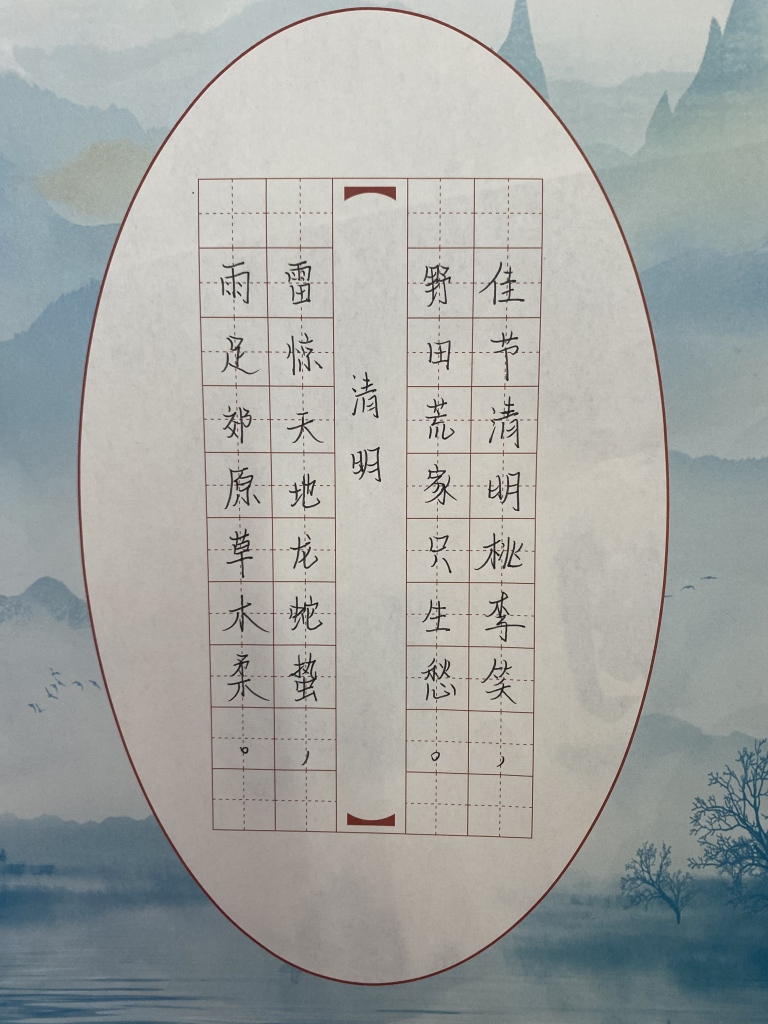 佳节清明桃李笑，
野田荒冢只生愁。
清明
雷惊天地龙蛇蛰，
雨足郊原草木柔。